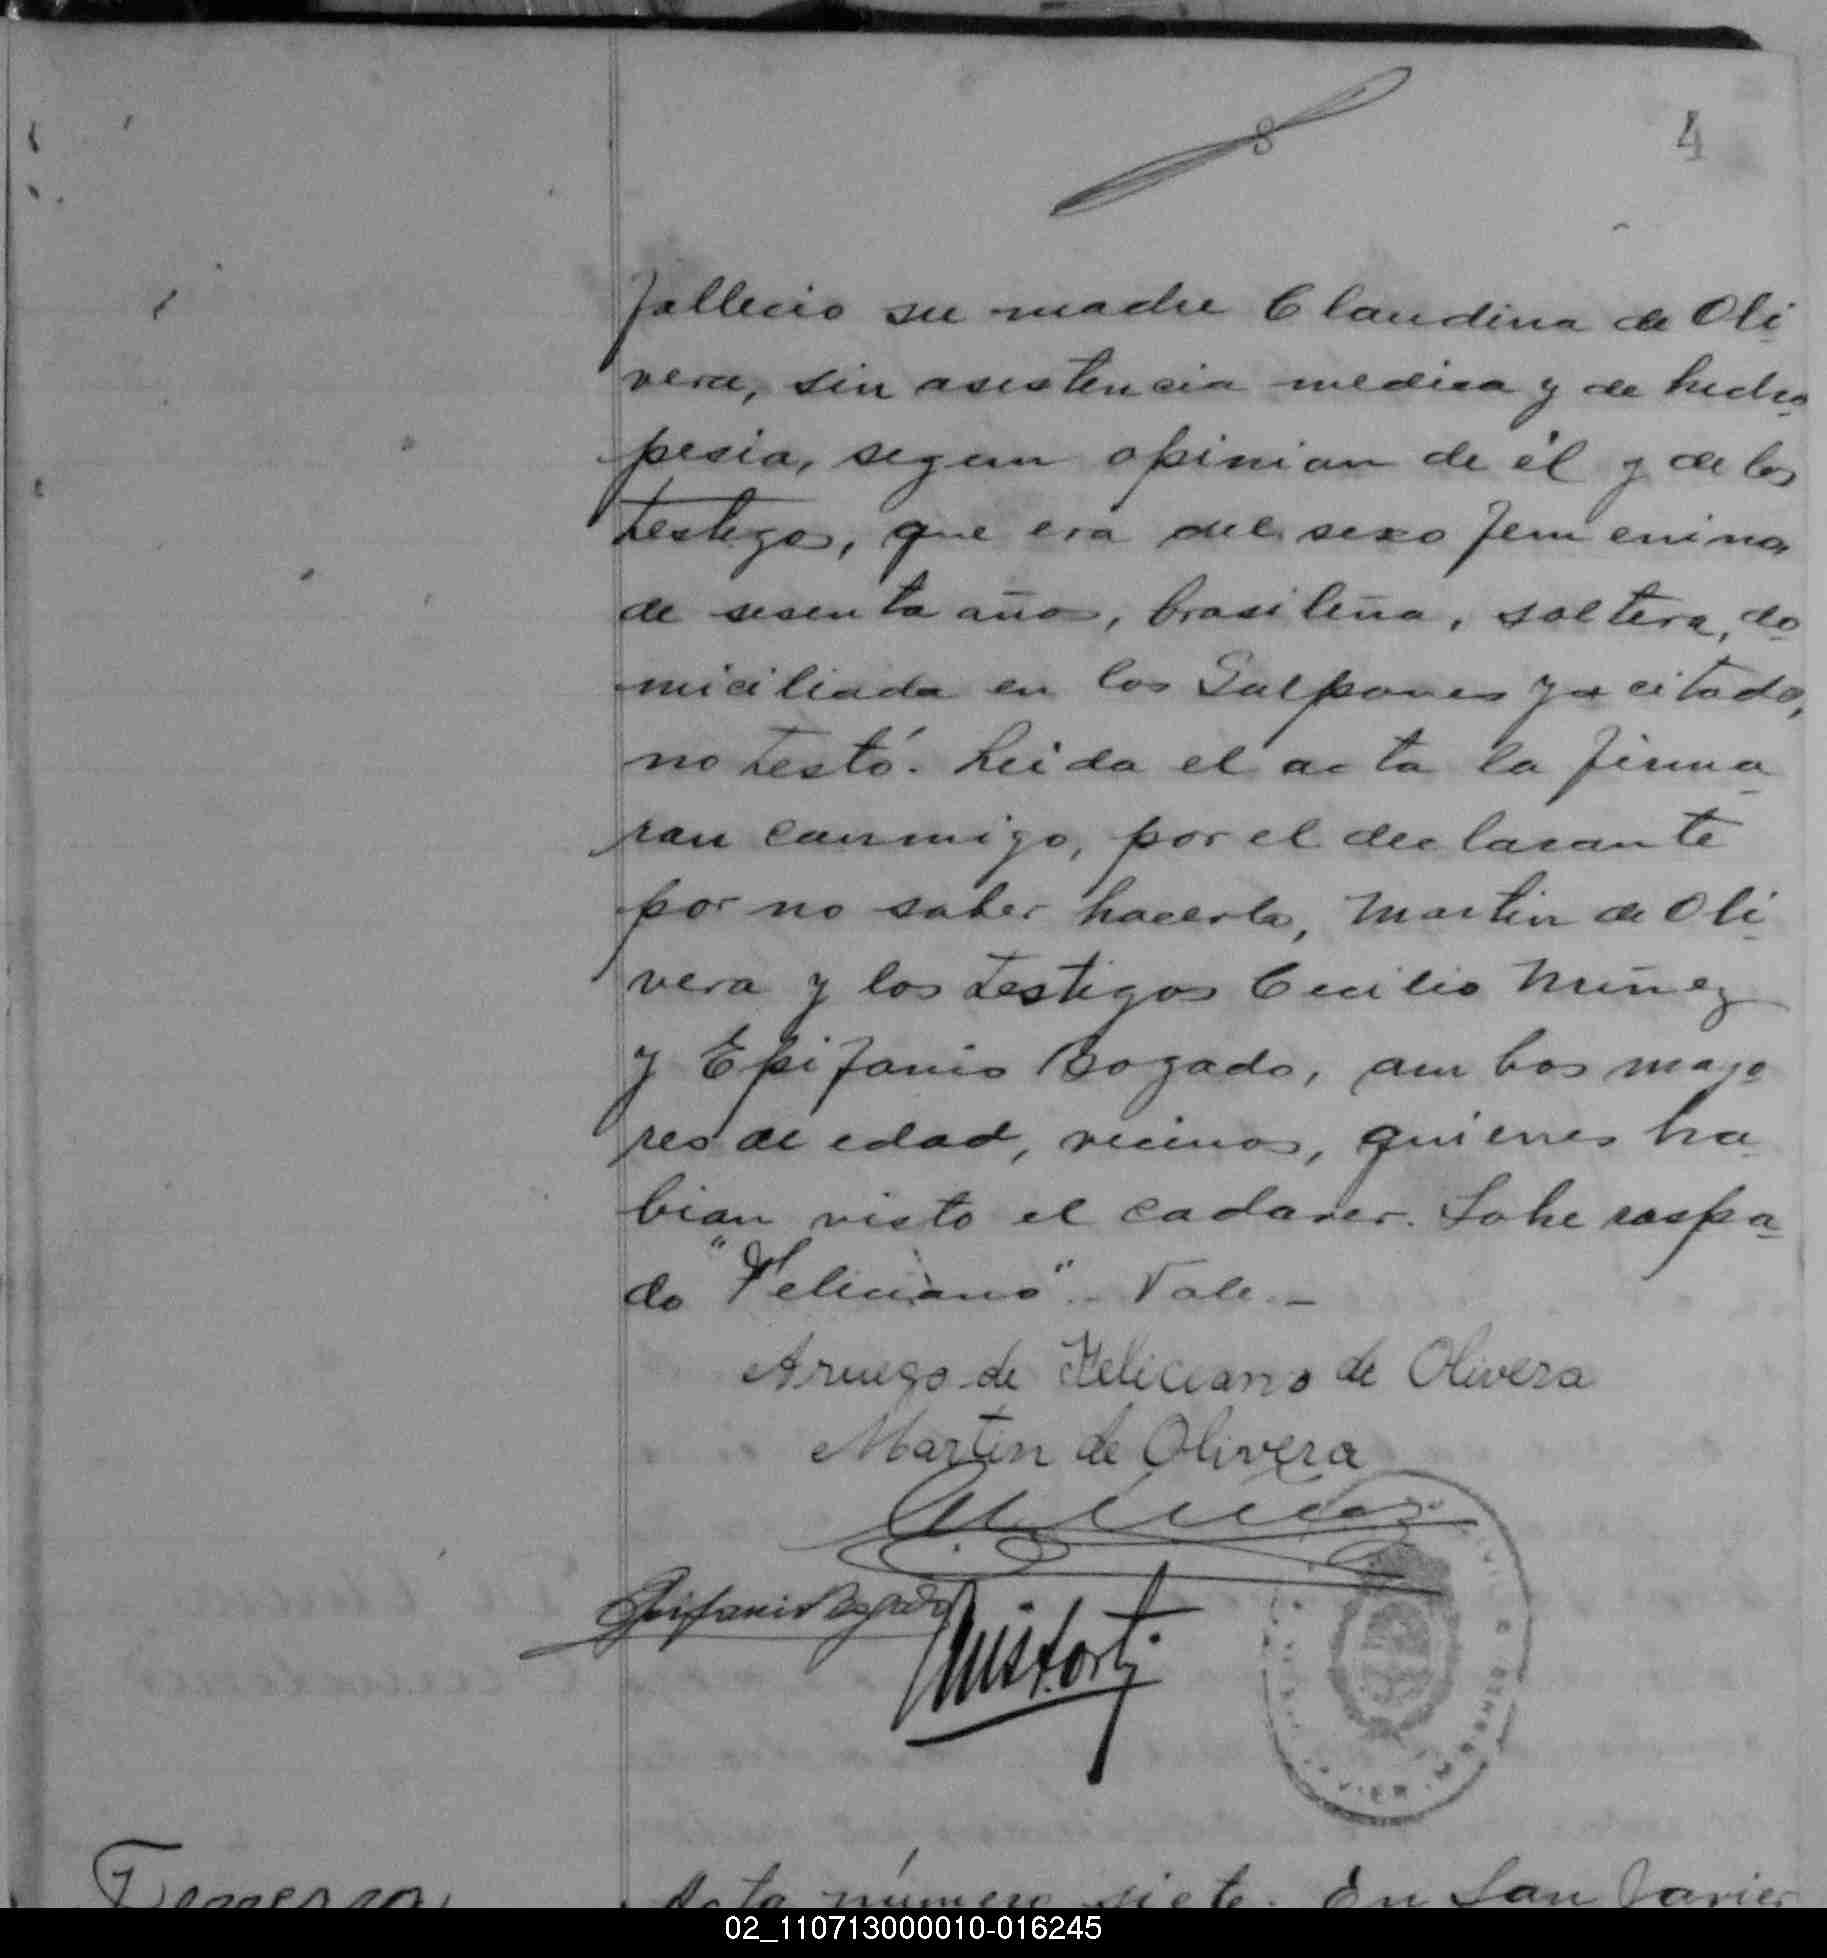 8
4
fallecio su madre Claudina de Oli
vera, sin asistencia medica y de hidro
pesia, segun opinion de él y de los
testigos, que era del sexo femenino,
de sesenta años, brasileña, soltera, do
miciliada en los Galpones ya citado,
no testó. Leida el acta la firma
ron conmigo, por el declarante
por no saber hacerlo, Martin de Oli
vera y los testigos Cecilio Nuñez
y Epifanio Bogado, ambos mayo
res de edad, vecinos, quienes ha
bian visto el cadaver. Sobre raspa
do "Feliciano". Vale. -
A ruego de Feliciano de Olivera
Martin de Olivera
Epifanio Bogado
Acta número siete. En San Javier
02_110713000010-016245